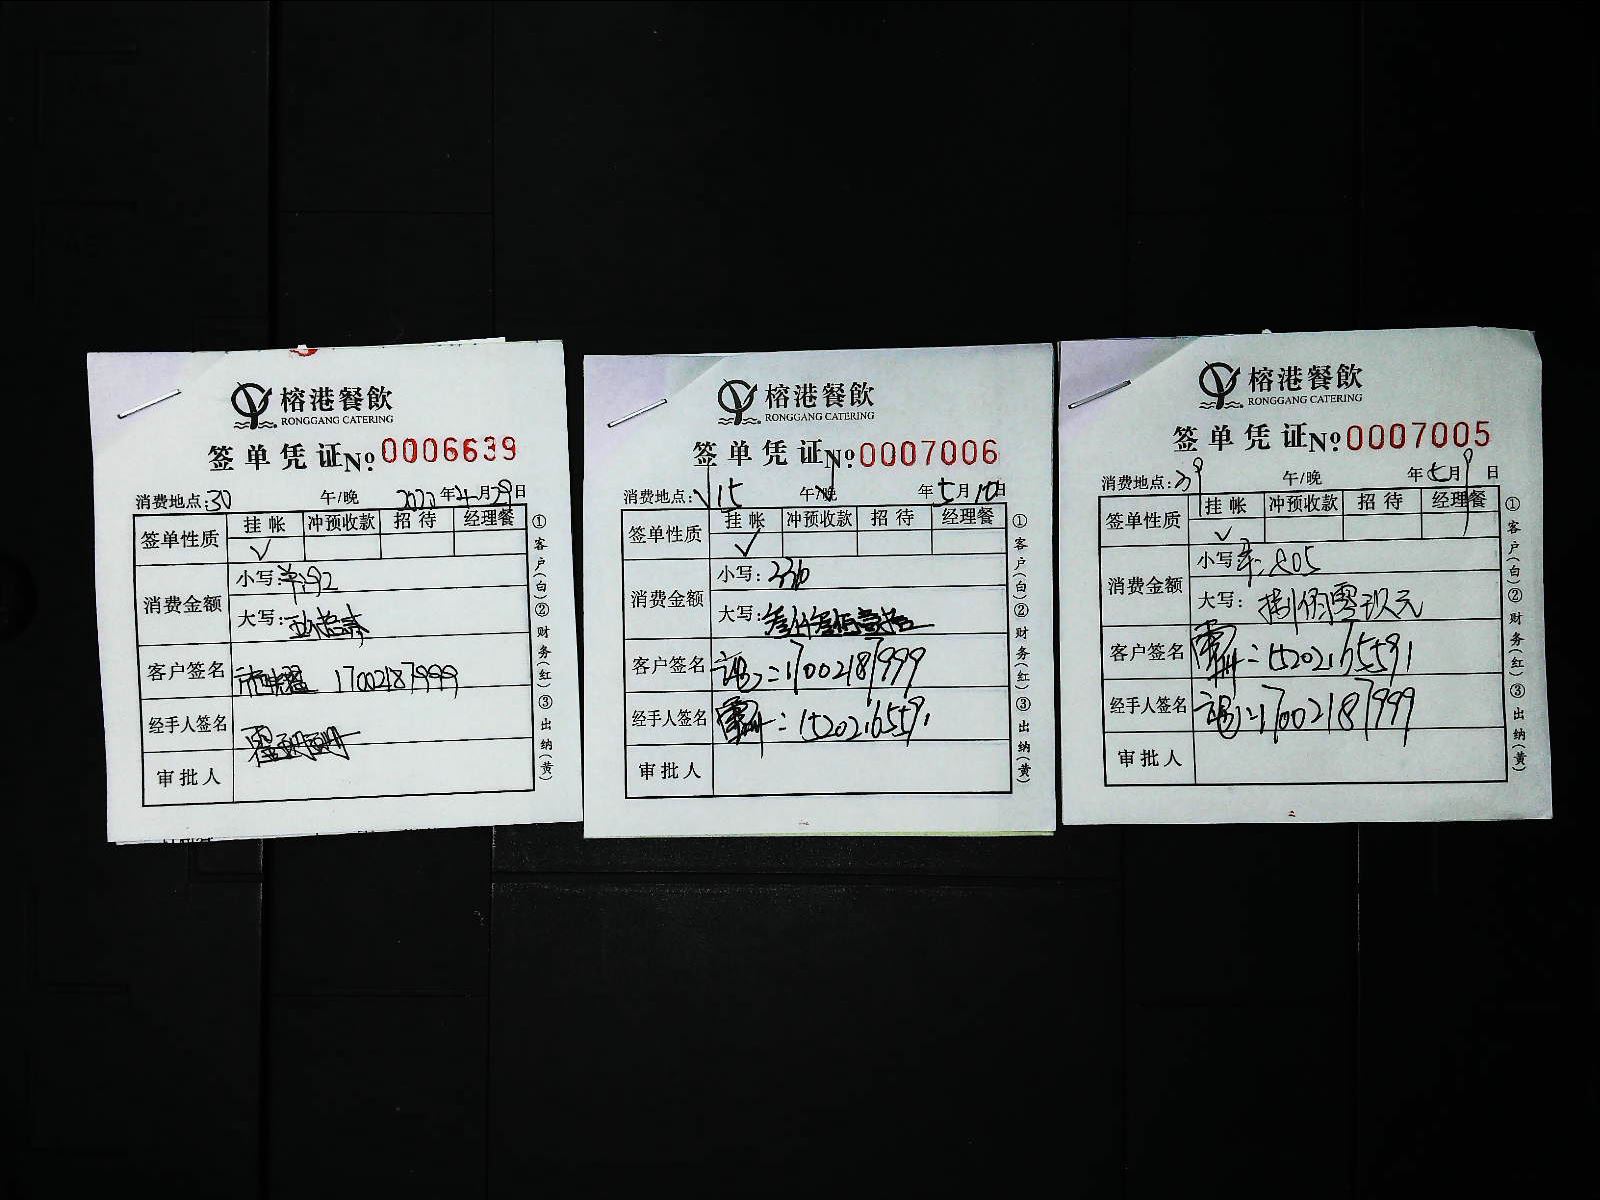 榕港餐飲
RONGGANG CATERING
签单凭证№0006639
消费地点:30 午/晚 2022年4月29日
签单性质 挂帐 冲预收款 招待 经理餐
✓
消费金额 小写:
大写:
客户签名 17002187999
经手人签名
审批人
①客户(白)②财务(红)③出纳(黄)
榕港餐飲
RONGGANG CATERING
签单凭证№0007006
消费地点: 15 午/晚 年5月10日
签单性质 挂帐 冲预收款 招待 经理餐
✓
消费金额 小写:
大写:
客户签名 17002187999
经手人签名 15202165591
审批人
①客户(白)②财务(红)③出纳(黄)
榕港餐飲
RONGGANG CATERING
签单凭证№0007005
消费地点:39 午/晚 年5月9日
签单性质 挂帐 冲预收款 招待 经理餐
✓
消费金额 小写
大写:
客户签名 15202165591
经手人签名 17002187999
审批人
①客户(白)②财务(红)③出纳(黄)